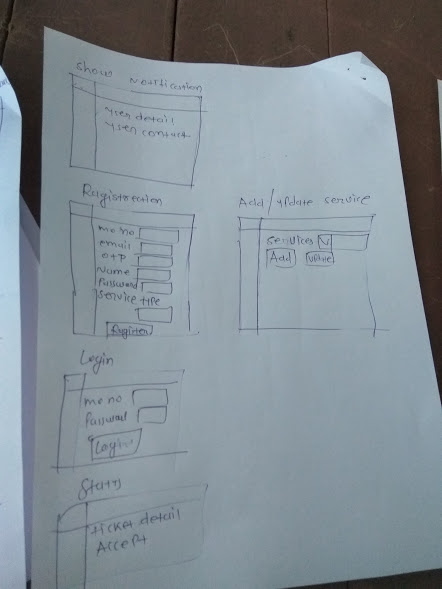 Show Notification
User detail
User contact
Registrection
mo no
email
otp
Name
Password
Service type
Register
Add/update service
Services V
Add update
Login
mo no
Password
Login
Status
Ticket detail
Accept